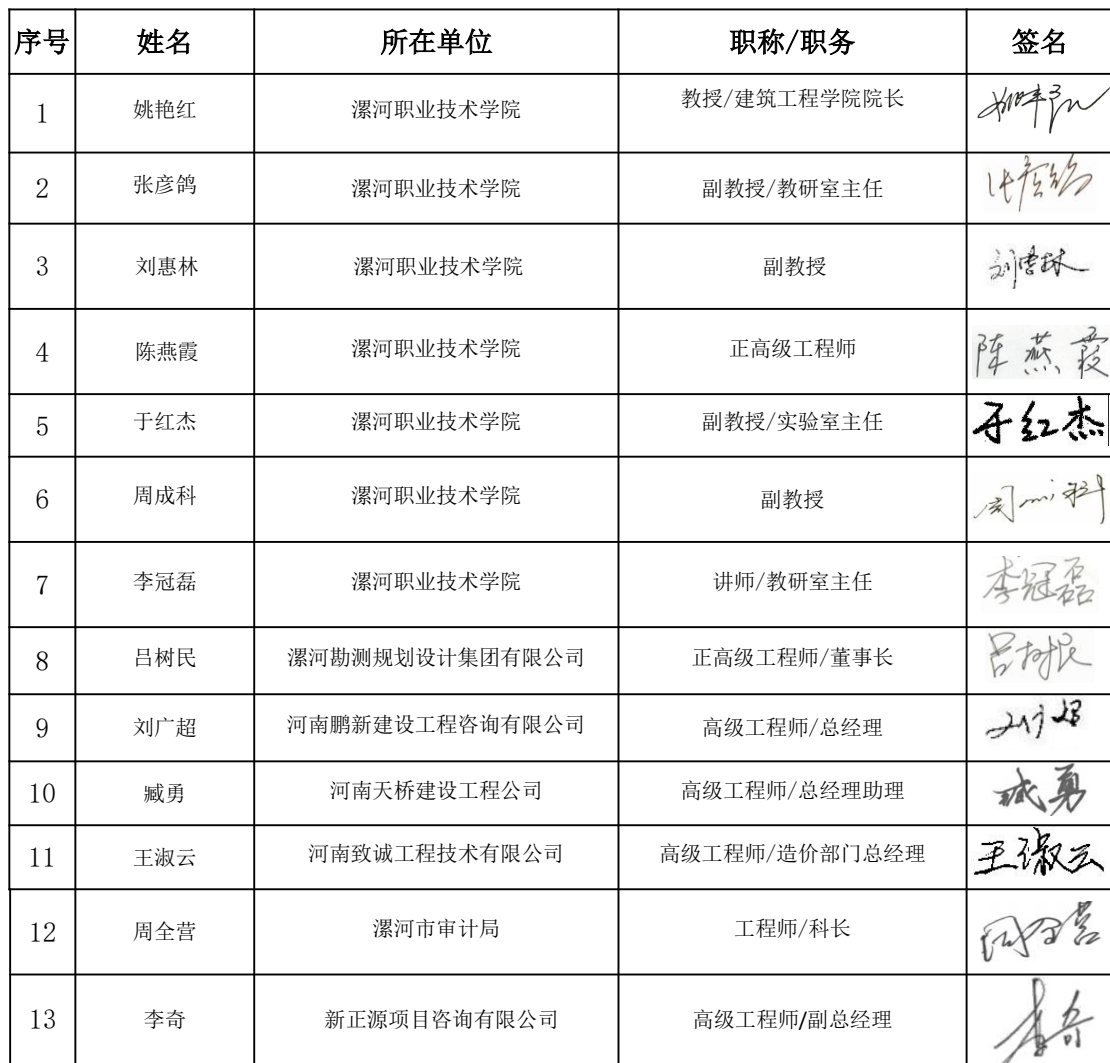 序号 姓名 所在单位 职称/职务 签名
1 姚艳红 漯河职业技术学院 教授/建筑工程学院院长 姚艳红
2 张彦鸽 漯河职业技术学院 副教授/教研室主任 张彦鸽
3 刘惠林 漯河职业技术学院 副教授 刘惠林
4 陈燕霞 漯河职业技术学院 正高级工程师 陈燕霞
5 于红杰 漯河职业技术学院 副教授/实验室主任 于红杰
6 周成科 漯河职业技术学院 副教授 周成科
7 李冠磊 漯河职业技术学院 讲师/教研室主任 李冠磊
8 吕树民 漯河勘测规划设计集团有限公司 正高级工程师/董事长 吕树民
9 刘广超 河南鹏新建设工程咨询有限公司 高级工程师/总经理 刘广超
10 臧勇 河南天桥建设工程公司 高级工程师/总经理助理 臧勇
11 王淑云 河南致诚工程技术有限公司 高级工程师/造价部门总经理 王淑云
12 周全营 漯河市审计局 工程师/科长 周全营
13 李奇 新正源项目咨询有限公司 高级工程师/副总经理 李奇